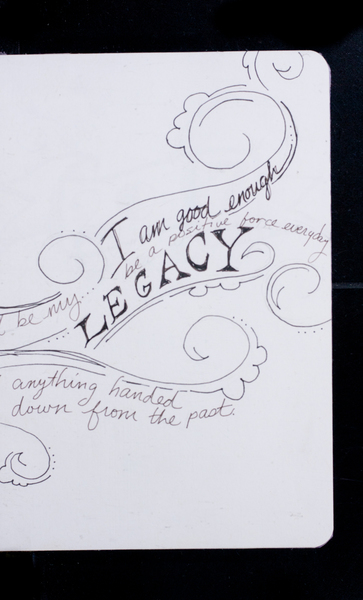 I am good enough
be a positive force everyday
be my
LEGACY
anything handed
down from the past.